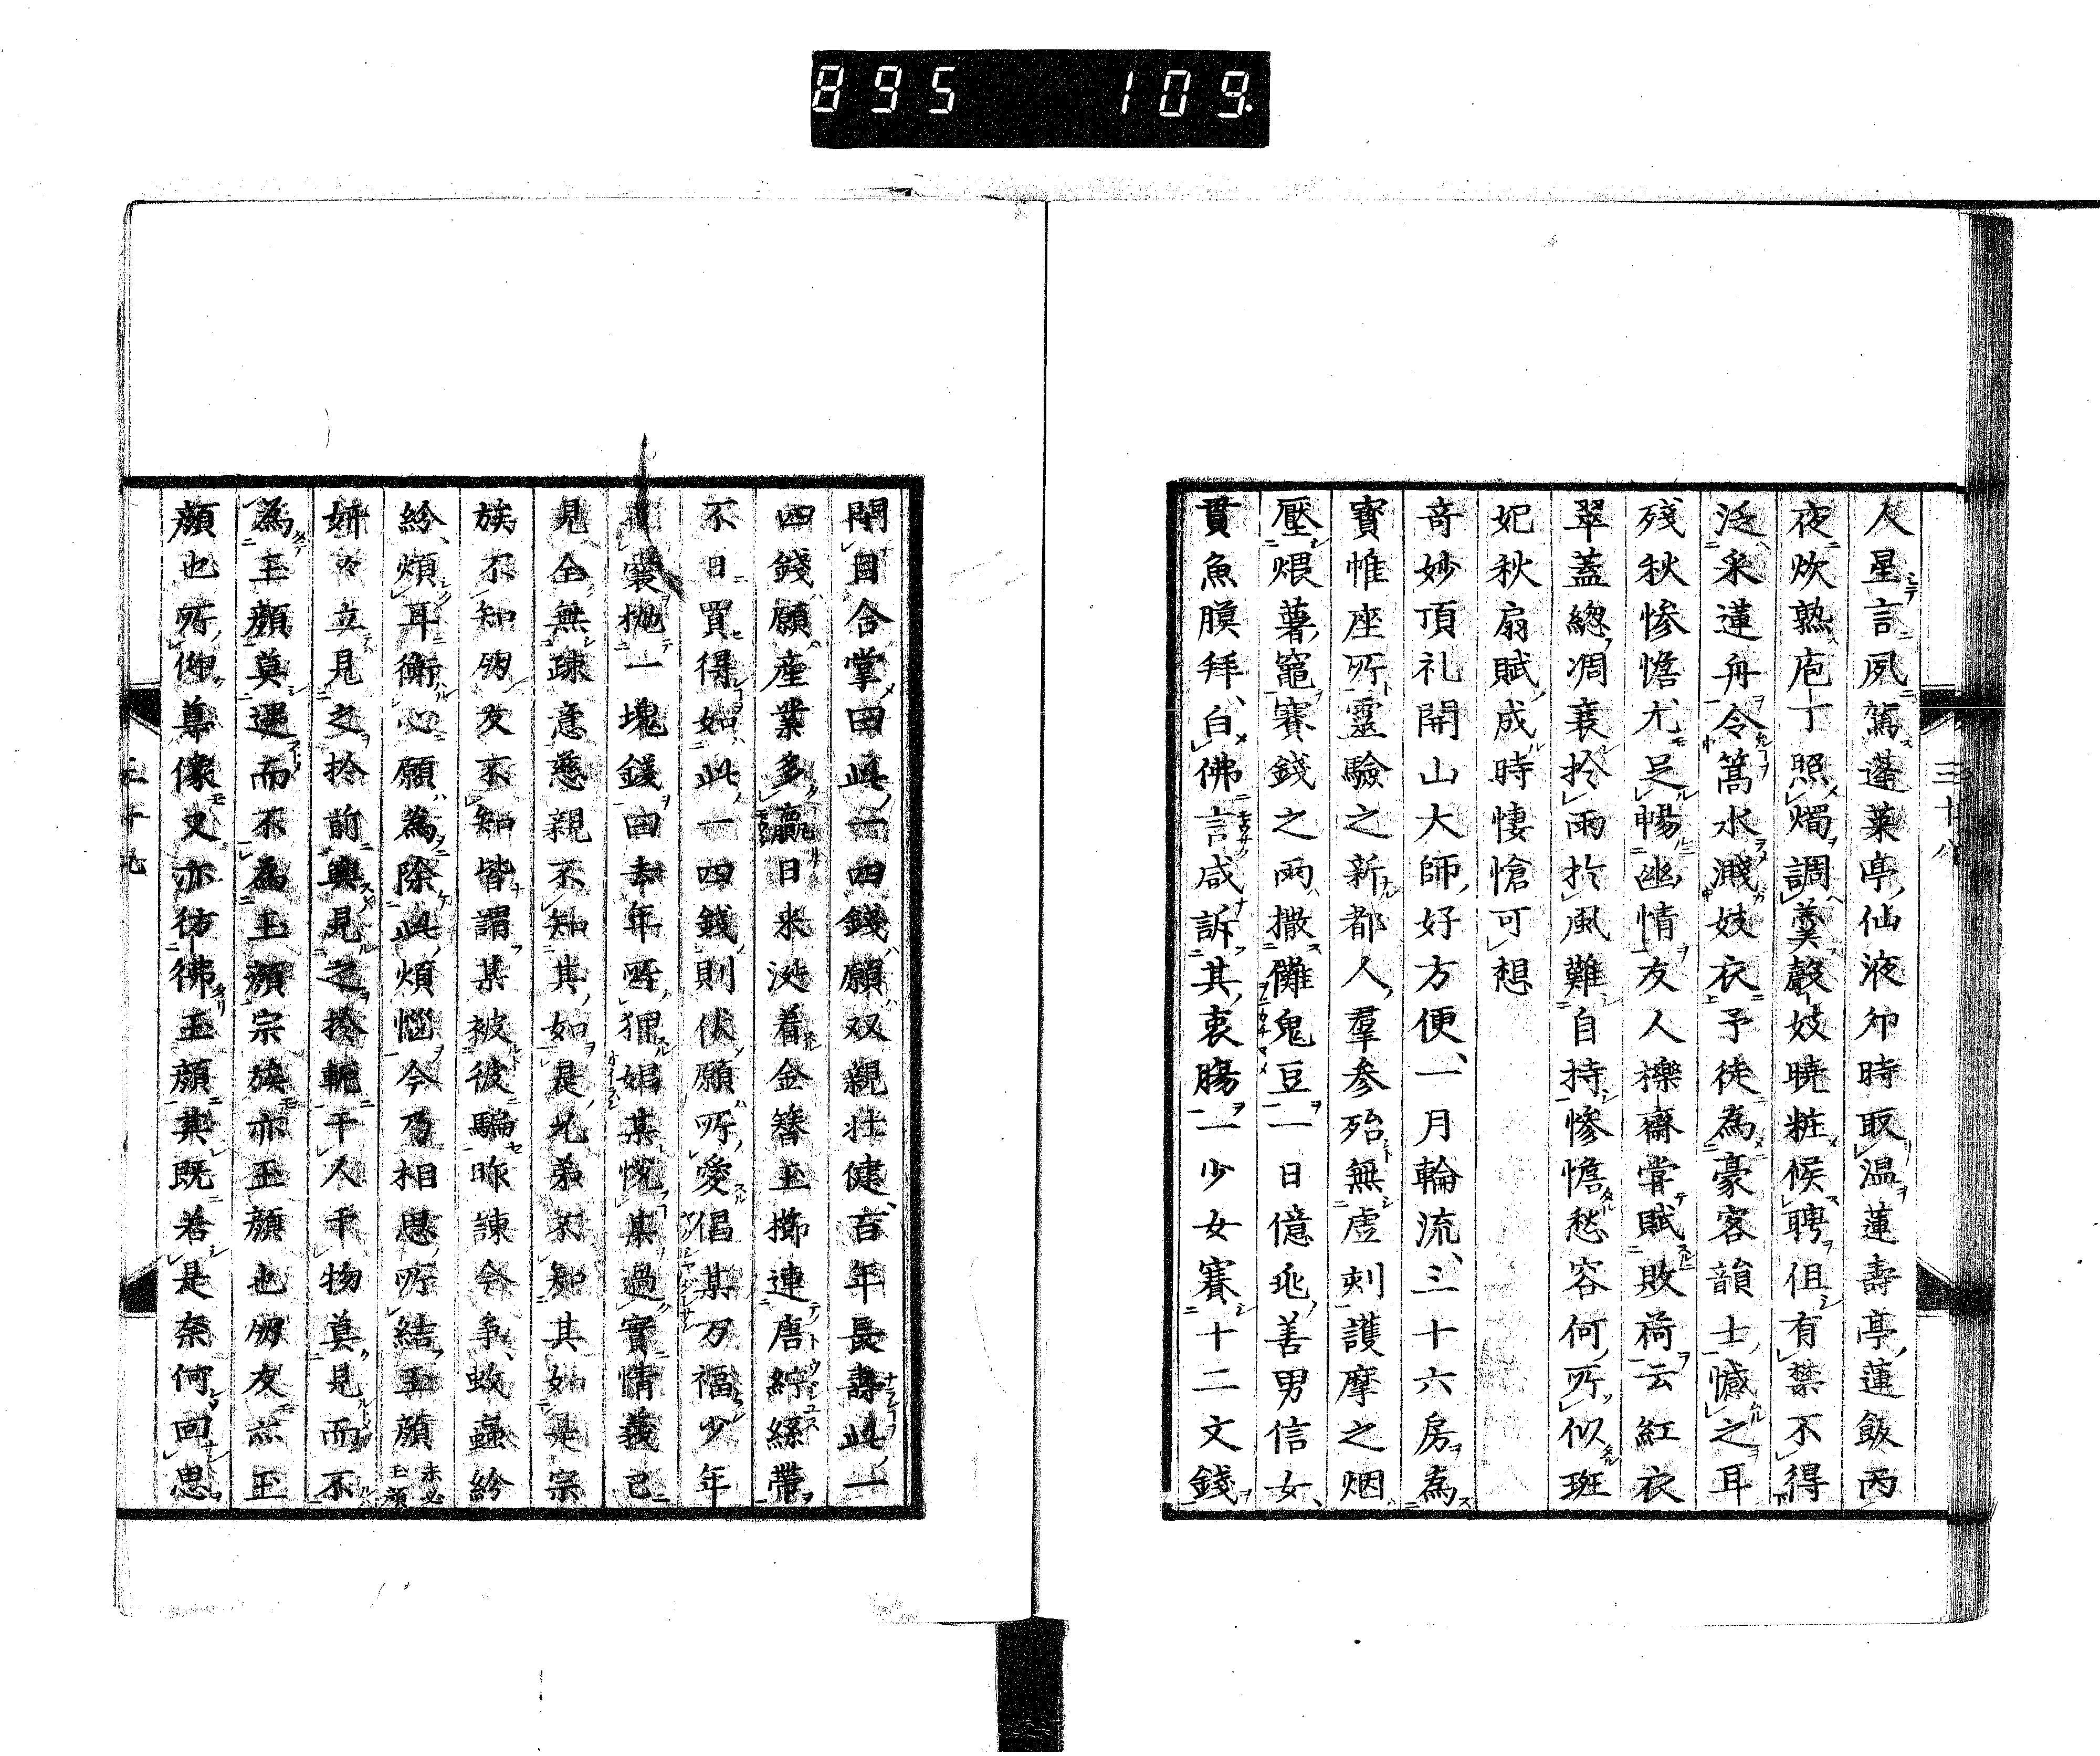 895 109.
三十八
人星言夙駕蓬萊亭仙液卯時取温蓮壽亭蓮飯丙
夜炊熟庖丁照燭調羹聲妓曉粧候聘但有禁不得
泛采蓮舟令篙水濺妓衣予徒為豪客韻士憾之耳
殘秋慘憺尤足暢幽情友人櫟齋嘗賦敗荷云紅衣
翠蓋總凋衰於雨於風難自持慘憺愁容何所似班
妃秋扇賦成時悽愴可想
奇妙頂礼開山大師好方便、一月輪流、三十六房為
寶帷座所靈驗之新都人羣參殆無虚刻護摩之烟
壓煨薯竈賽錢之雨撒儺鬼豆一日億兆善男信女、
貫魚膜拜、白佛言咸訴其衷腸一少女賽十二文錢
閉目合掌曰此一四錢願双親壮健、百年長壽此一
四錢願産業多贏日来泛着金簪玉擲連唐綷絲帶
不日買得如此一四錢則伏願所愛倡某万福少年
囊抛一塊錢曰去年所狎娼某悦某過實情義已
見全無疎意慈親不知其如是兄弟不知其如是宗
族不知朋友不知皆謂某被彼騙昨諫今争、蚊蟲紛
紛、煩耳衡心願為除此煩惱今乃相思所結玉顔未必玉顔
妍々立見之於前輿見之於軛干人干物莫見而不
為玉顔莫遇而不為玉顔宗族亦玉顔也朋友亦玉
顔也所仰尊像又亦彷彿玉顔其既若是奈何回思
三十九